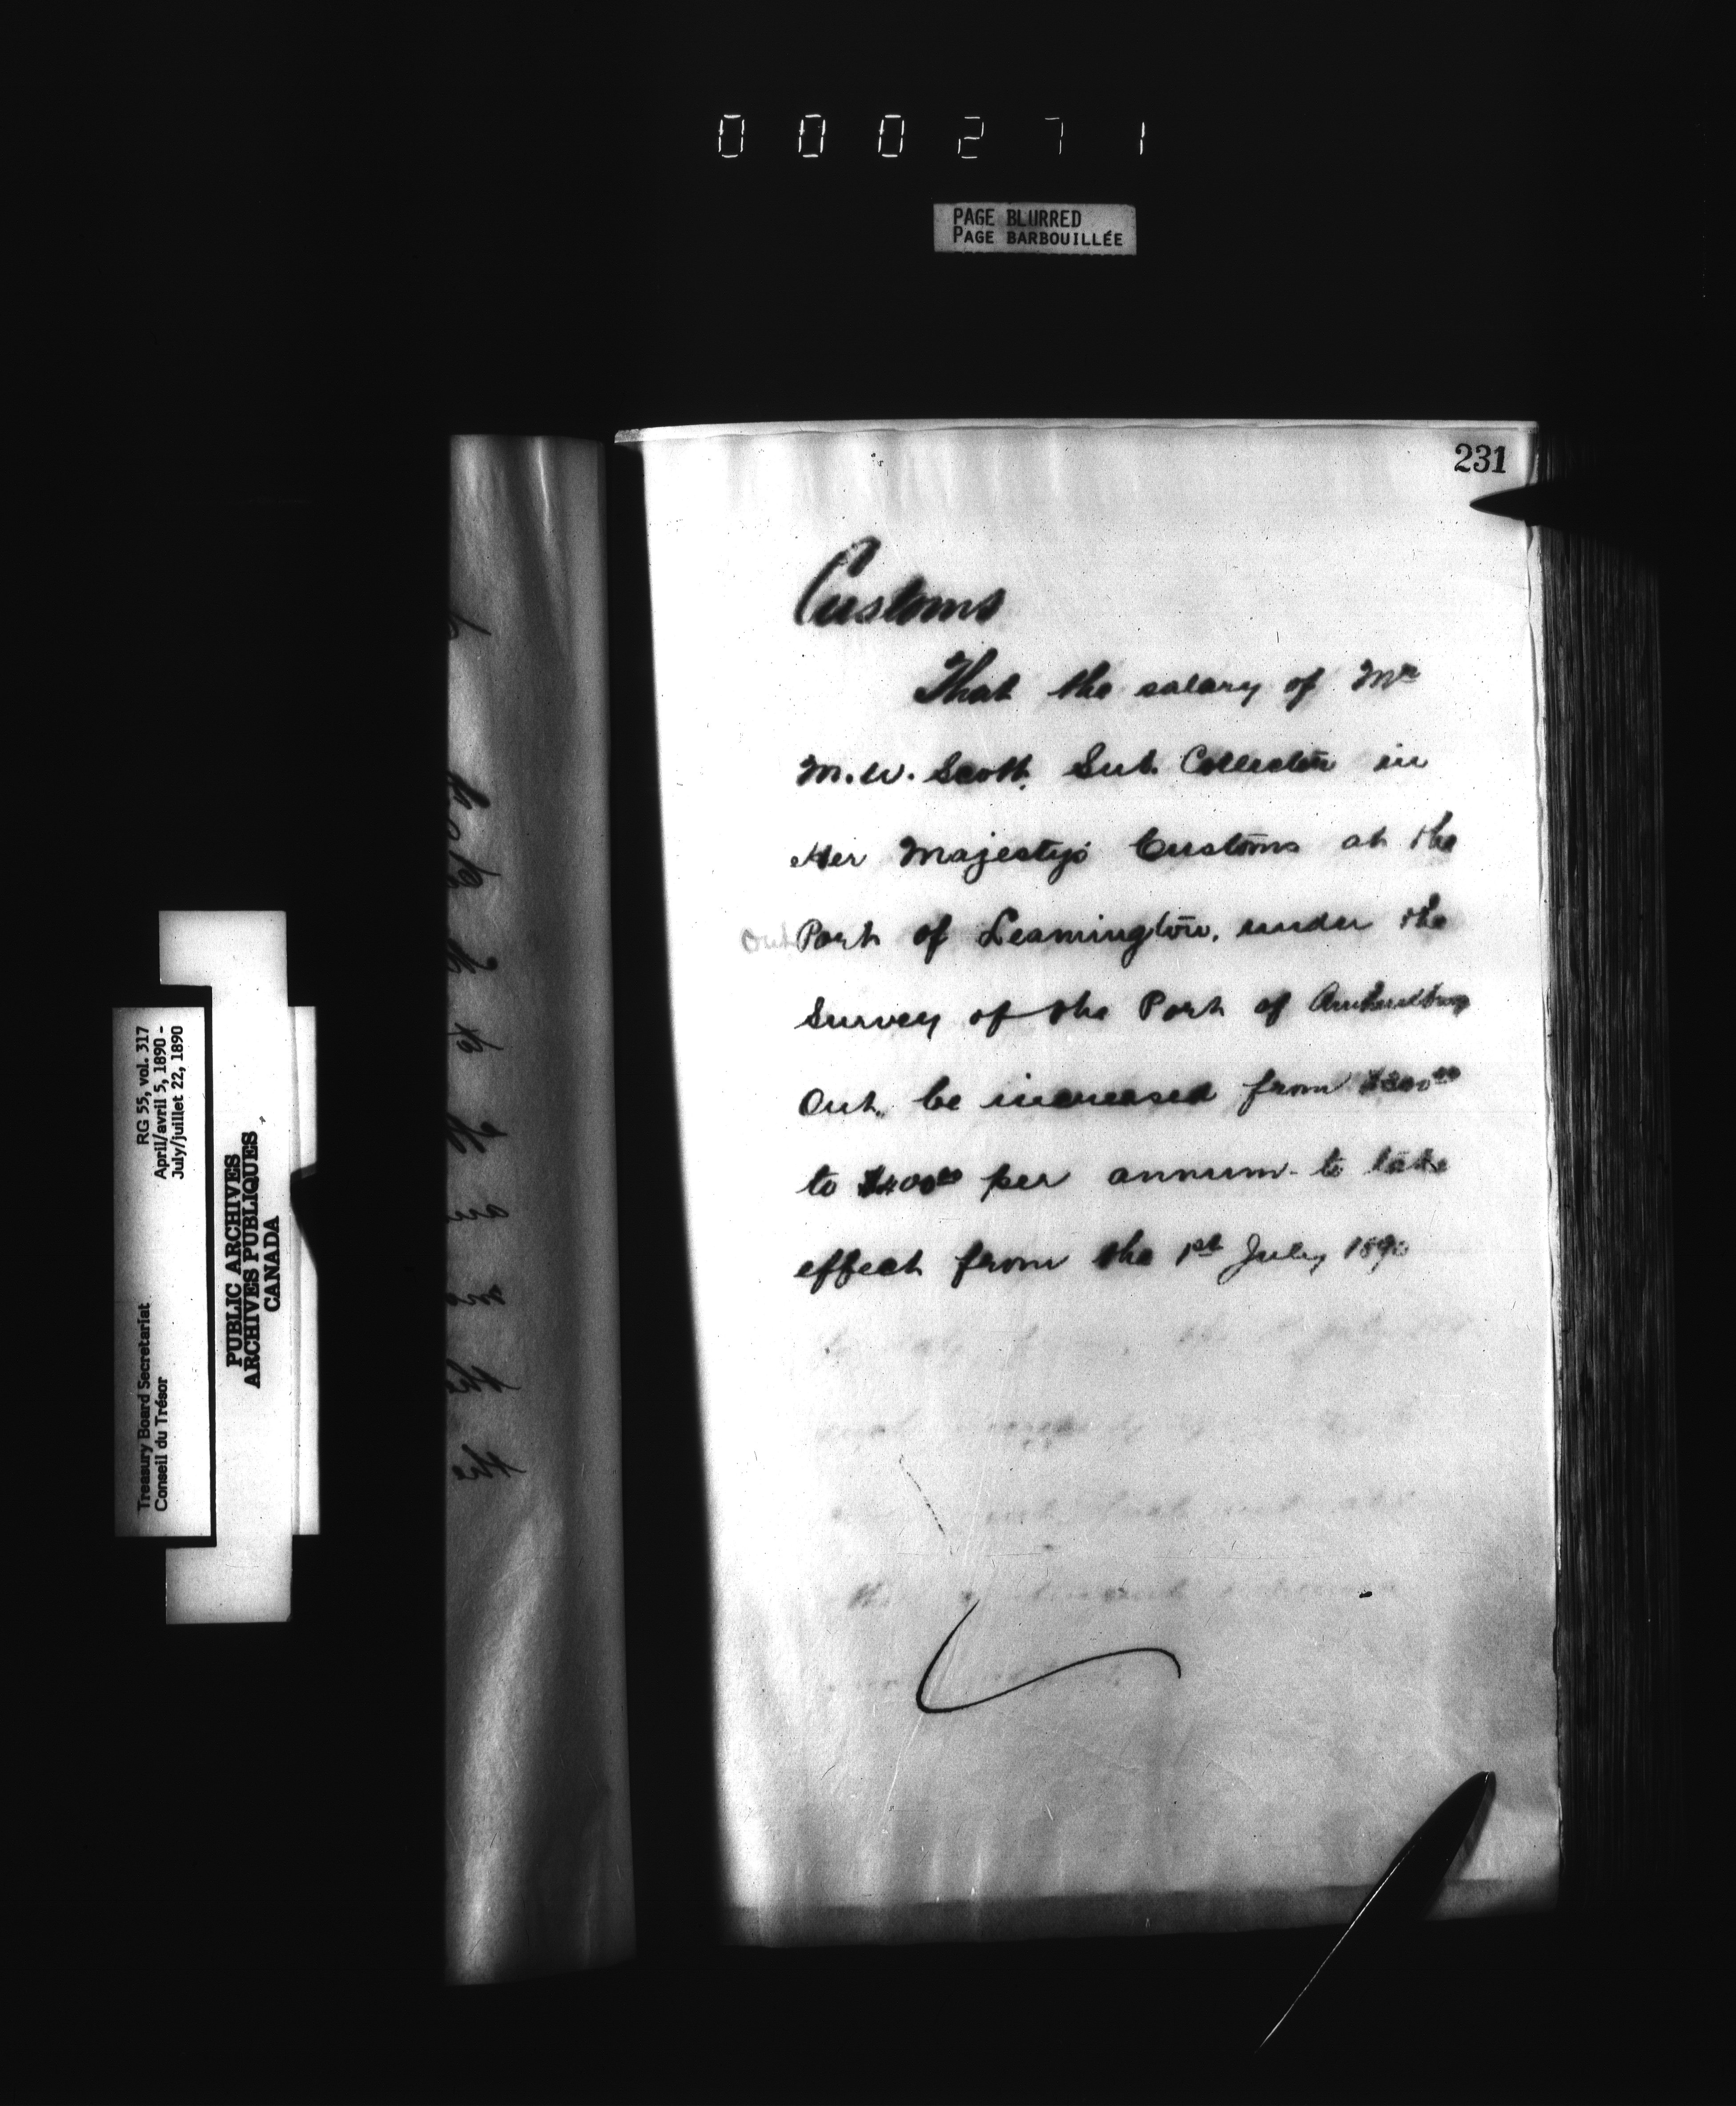 000271
PAGE BLURRED
PAGE BARBOUILLÉE
231
Customs
That the salary of Mr
M.W. Scott, Sub. Collector in
Her Majesty's Customs at the
Out Port of Leamington, under the
Survey of the Port of Amherstburg
Ont. be increased from
to $400.00 per annum - to take
effect from the 1st July 1890
RG 55, vol. 317
April/avril 5, 1890 -
July/juillet 22, 1890
Treasury Board Secretariat
Conseil du Trésor
PUBLIC ARCHIVES
ARCHIVES PUBLIQUES
CANADA